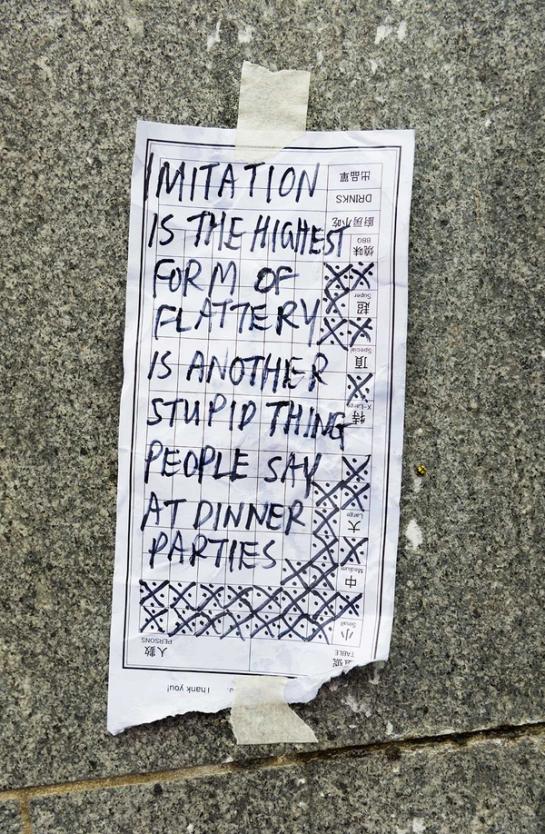 IMITATION
IS THE HIGHEST
FORM OF
FLATTERY
IS ANOTHER
STUPID THING
PEOPLE SAY
AT DINNER
PARTIES
出品單
DRINKS
廚房小吃
BBQ
燒味
Super
超
Special
頂
X-Large
特
Large
大
Medium
中
Small
小
TABLE
人數
PERSONS
Thank you!